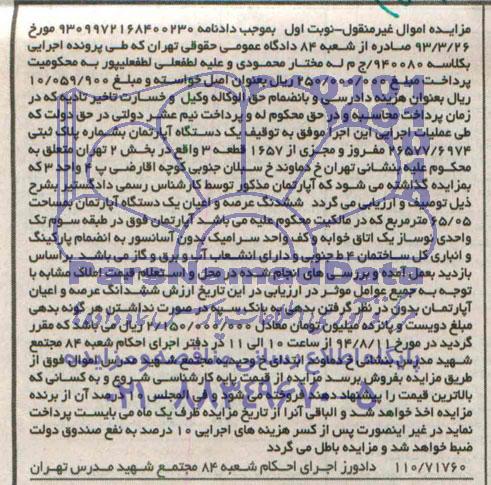 مزایده اموال غیرمنقول-نوبت اول بموجب دادنامه ۹۳۰۹۹۷۲۱۶۸۴۰۰۲۳۰ مورخ
۹۳/۳/۲۶ صادره از شعبه ۸۴ دادگاه عمومی حقوقی تهران که طی پرونده اجرایی
بکلاسه ۹۴۰۰۸۰/ج م له مختار محمودی و علیه لطفعلی لطفعلیپور به محکومیت
پرداخت مبلغ ۲۵۰/۰۰۰/۰۰۰ ریال بعنوان اصل خواسته و مبلغ ۱۰/۰۵۹/۹۰۰
ریال بعنوان هزینه دادرسی و بانضمام حق الوکاله وکیل و خسارت تاخیر تادیه که در
زمان پرداخت محاسبه و در حق محکوم له و پرداخت نیم عشر دولتی در حق دولت که
طی عملیات اجرایی این اجرا موفق به توقیف یک دستگاه آپارتمان بشماره پلاک ثبتی
۲۶۵۷۷/۶۹۷۴ مفروز و مجزی از ۱۶۵۷ قطعه ۳ واقع در بخش ۲ تهران متعلق به
محکوم علیه بنشانی تهران خ دماوند خ سبلان جنوبی کوچه اقارضی پ ۳ واحد ۳ که
بمزایده گذاشته می شود که آپارتمان مذکور توسط کارشناس رسمی دادگستر بشرح
ذیل توصیف و ارزیابی می گردد ششدنگ عرصه و اعیان یک دستگاه آپارتمان بمساحت
۶۵/۰۵ مترمربع که در مالکیت محکوم علیه می باشد آپارتمان فوق در طبقه سوم تک
واحدی نوساز یک اتاق خوابه و کف واحد سرامیک بدون آسانسور به انضمام پارکینگ
و انباری کل ساختمان ۴ ط جنوبی و دارای انشعاب آب و برق و گاز می باشد بر اساس
بازدید بعمل آمده و بررسی های انجام شده در محل و استعلام قیمت املاک مشابه با
توجه به جمیع عوامل موثر در ارزیابی در این تاریخ ارزش ششدانگ عرصه و اعیان
آپارتمان بدون در نظر گرفتن بدهی به بانک سپه در صورت نداشتن هر گونه بدهی
مبلغ دویست و پانزده میلیون تومان معادل ۲/۱۵۰/۰۰۰/۰۰۰ ریال می باشد که مقرر
گردید در مورخ ۹۴/۸/۱۱ از ساعت ۱۰ الی ۱۱ در دفتر اجرای احکام شعبه ۸۴ مجتمع
شهید مدرس بنشانی خ دماوند ابتدای خ وحیدیه مجتمع شهید مدرس اموال فوق از
طریق مزایده بفروش برسد مزایده از قیمت پایه کارشناسی شروع و به کسانی که
بالاترین قیمت را پیشنهاد دهند فروخته می شود و فی المجلس ۱۰ درصد آن از برنده
مزایده اخذ خواهد شد و الباقی آنرا از تاریخ مزایده ظرف یک ماه می بایست پرداخت
نماید در غیر اینصورت پس از کسر هزینه های اجرایی ۱۰ درصد به نفع صندوق دولت
ضبط خواهد شد و مزایده باطل می گردد
۱۱۰/۷۱۷۶۰ دادورز اجرای احکام شعبه ۸۴ مجتمع شهید مدرس تهران
۰۲۱-۸۸۳۴۹۶۷۰-۵